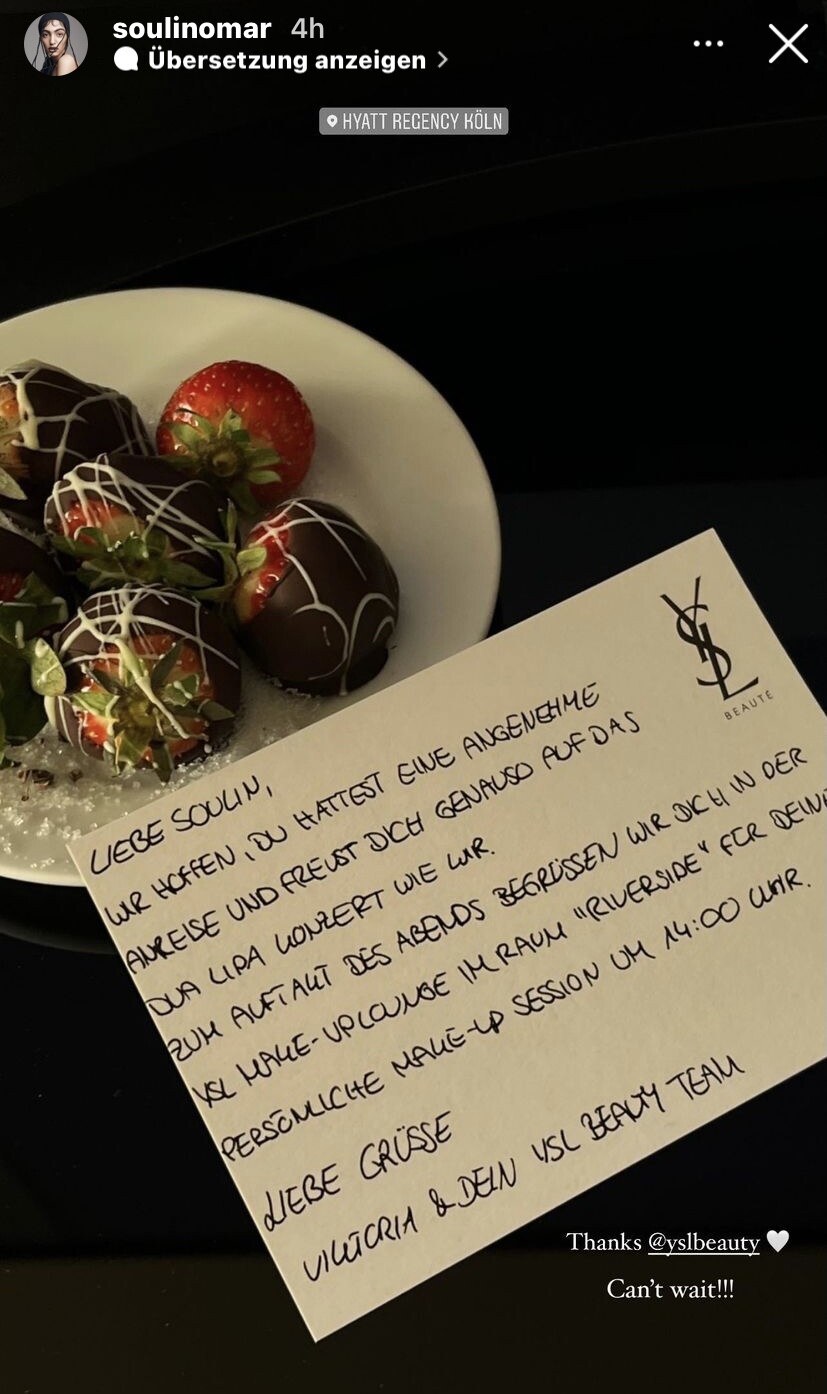 soulinomar 4h
Übersetzung anzeigen
HYATT REGENCY KÖLN
YSL
BEAUTÉ
LIEBE SOULIN,
WIR HOFFEN, DU HATTEST EINE ANGENEHME
ANREISE UND FREUST DICH GENAUSO AUF DAS
DUA LIPA KONZERT WIE WIR.
ZUM AUFTAKT DES ABENDS BEGRÜSSEN WIR DICH IN DER
YSL MAKE-UP LOUNGE IM RAUM "RIVERSIDE" FÜR DEINE
PERSÖNLICHE MAKE-UP SESSION UM 14:00 UHR.
LIEBE GRÜSSE
VIKTORIA & DEIN YSL BEAUTY TEAM
Thanks @yslbeauty
Can't wait!!!